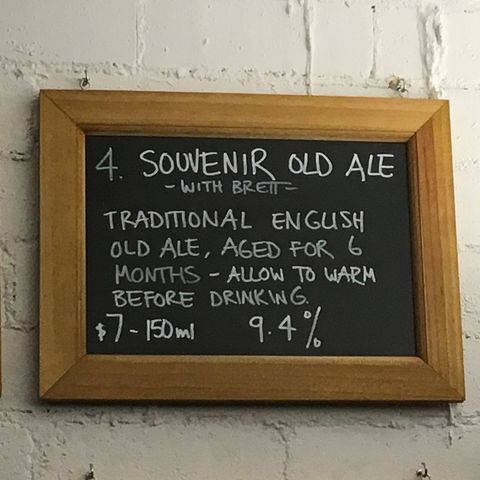 4. SOUVENIR OLD ALE
- WITH BRETT -
TRADITIONAL ENGLISH
OLD ALE, AGED FOR 6
MONTHS - ALLOW TO WARM
BEFORE DRINKING.
$7 - 150ml 9.4%